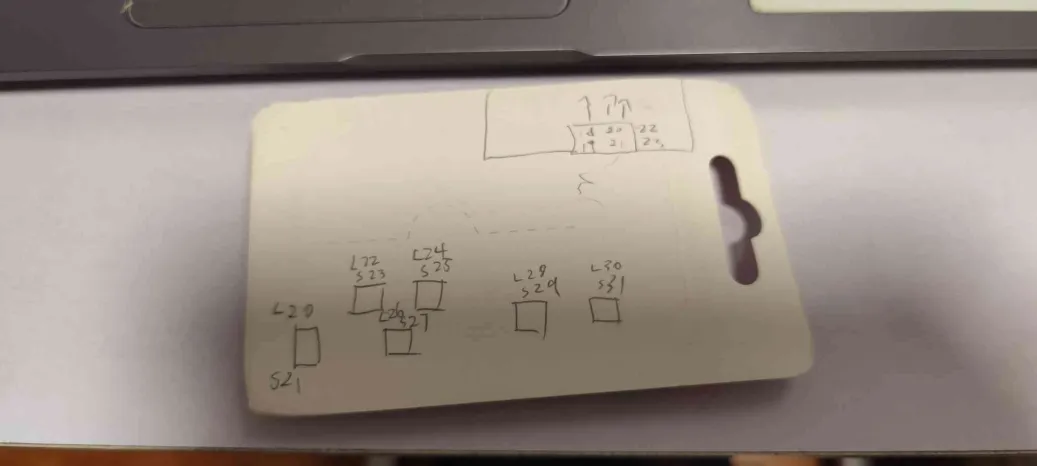 18 20 22
19 21 23
L22
S23
L24
S25
L28
S29
L30
S31
L26
S27
L20
S21